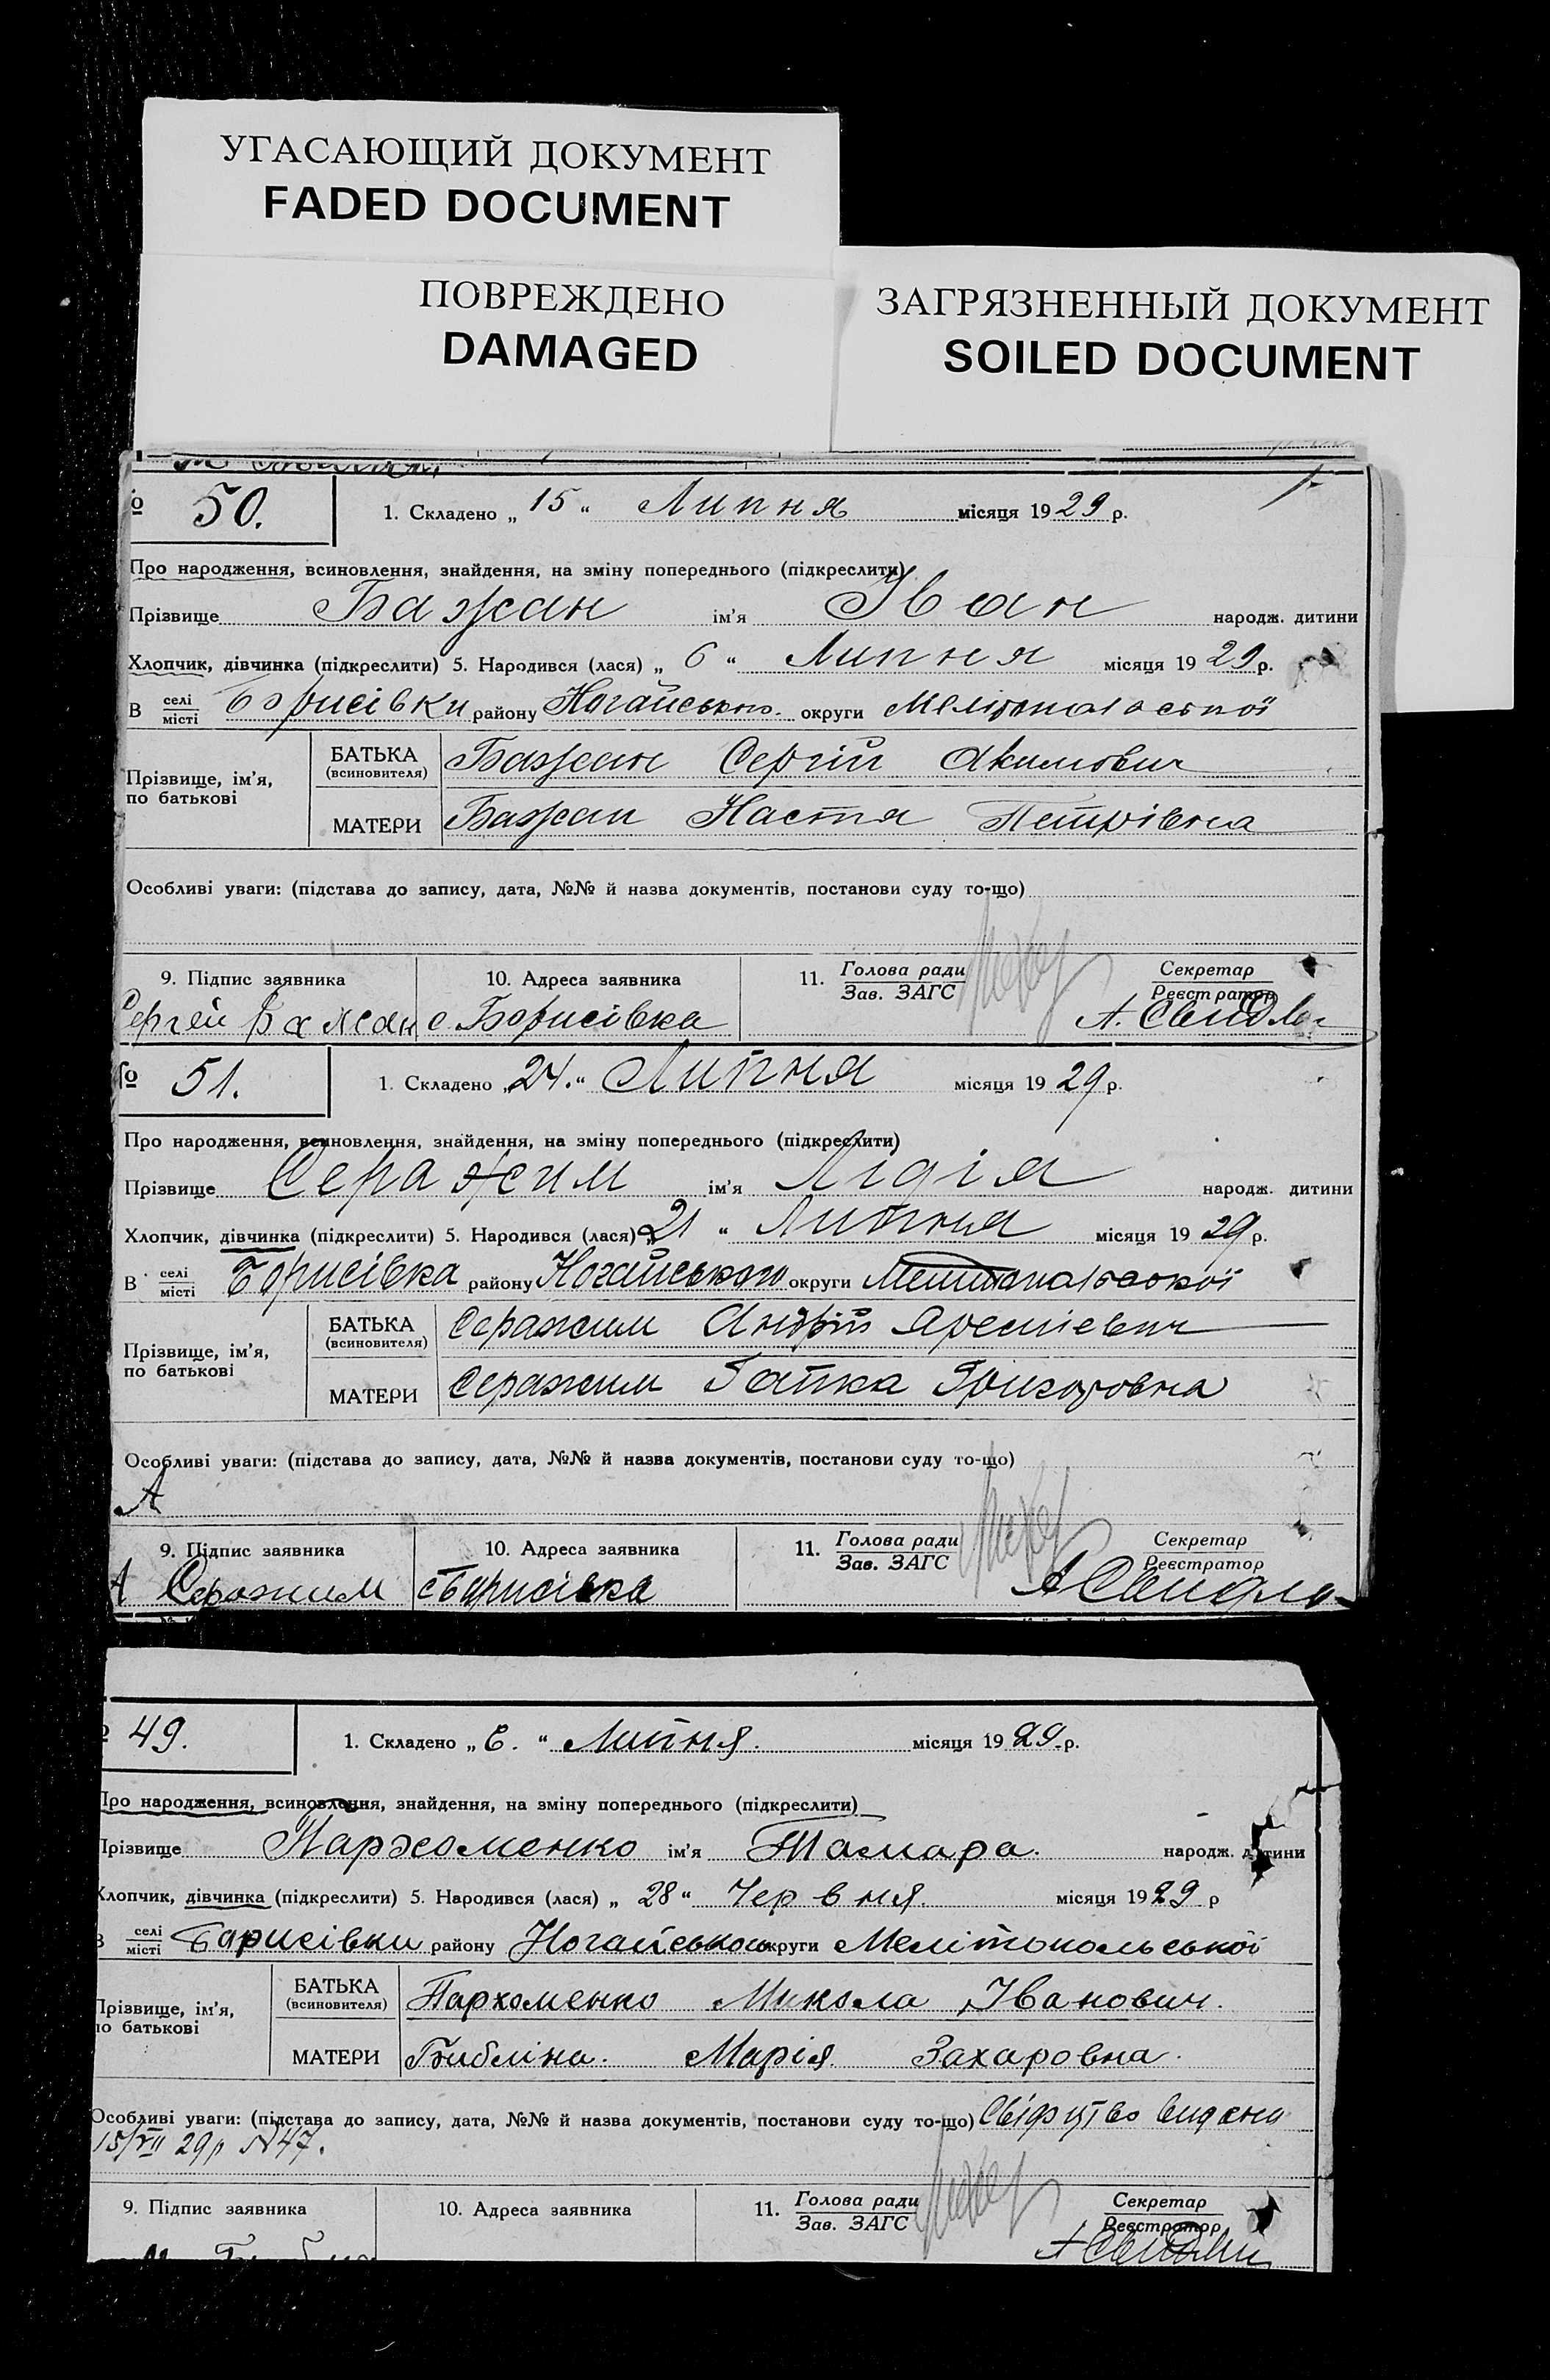 УГАСАЮЩИЙ ДОКУМЕНТ
FADED DOCUMENT
ПОВРЕЖДЕНО
DAMAGED
ЗАГРЯЗНЕННЫЙ ДОКУМЕНТ
SOILED DOCUMENT
№ 50. 1. Складено „ 15 “ Липня місяця 1929 р.
Про народження, всиновлення, знайдення, на зміну попереднього (підкреслити)
Прізвище Бажан ім'я Іван народж. дитини
Хлопчик, дівчинка (підкреслити) 5. Народився (лася) „ 6 “ Липня місяця 1929 р.
В селі/місті Борисівки району Ногайського округи Мелітопольської
Прізвище, ім'я, по батькові
БАТЬКА (всиновителя) Бажан Сергій Акимович
МАТЕРИ Бажан Настя Петрівна
Особливі уваги: (підстава до запису, дата, №№ й назва документів, постанови суду то-що)
9. Підпис заявника 10. Адреса заявника 11. Голова ради/Зав. ЗАГС Секретар/Реєстратор
Сергей Бажан с. Борисівка А.
№ 51. 1. Складено „ 24. “ Липня місяця 1929 р.
Про народження, всиновлення, знайдення, на зміну попереднього (підкреслити)
Прізвище Серажим ім'я Лідія народж. дитини
Хлопчик, дівчинка (підкреслити) 5. Народився (лася) „ 21 “ Липня місяця 1929 р.
В селі/місті Борисівка району Ногайського округи
Прізвище, ім'я, по батькові
БАТЬКА (всиновителя) Серажим Андрій
МАТЕРИ Серажим Гапка Григоровна
Особливі уваги: (підстава до запису, дата, №№ й назва документів, постанови суду то-що)
А
9. Підпис заявника 10. Адреса заявника 11. Голова ради/Зав. ЗАГС Секретар/Реєстратор
А Серажим с Борисівка А
49. 1. Складено „ 6. “ Липня. місяця 1929 р.
Про народження, всиновлення, знайдення, на зміну попереднього (підкреслити)
Прізвище Пархоменко ім'я Тамара. народж. дитини
Хлопчик, дівчинка (підкреслити) 5. Народився (лася) „ 28 “ Червня. місяця 1929 р
В селі/місті Борисівки району Ногайського округи Мелітопольської
Прізвище, ім'я, по батькові
БАТЬКА (всиновителя) Пархоменко Микола Іванович.
МАТЕРИ Марія Захаровна.
Особливі уваги: (підстава до запису, дата, №№ й назва документів, постанови суду то-що)
15/VII 29р N47.
9. Підпис заявника 10. Адреса заявника 11. Голова ради/Зав. ЗАГС Секретар/Реєстратор